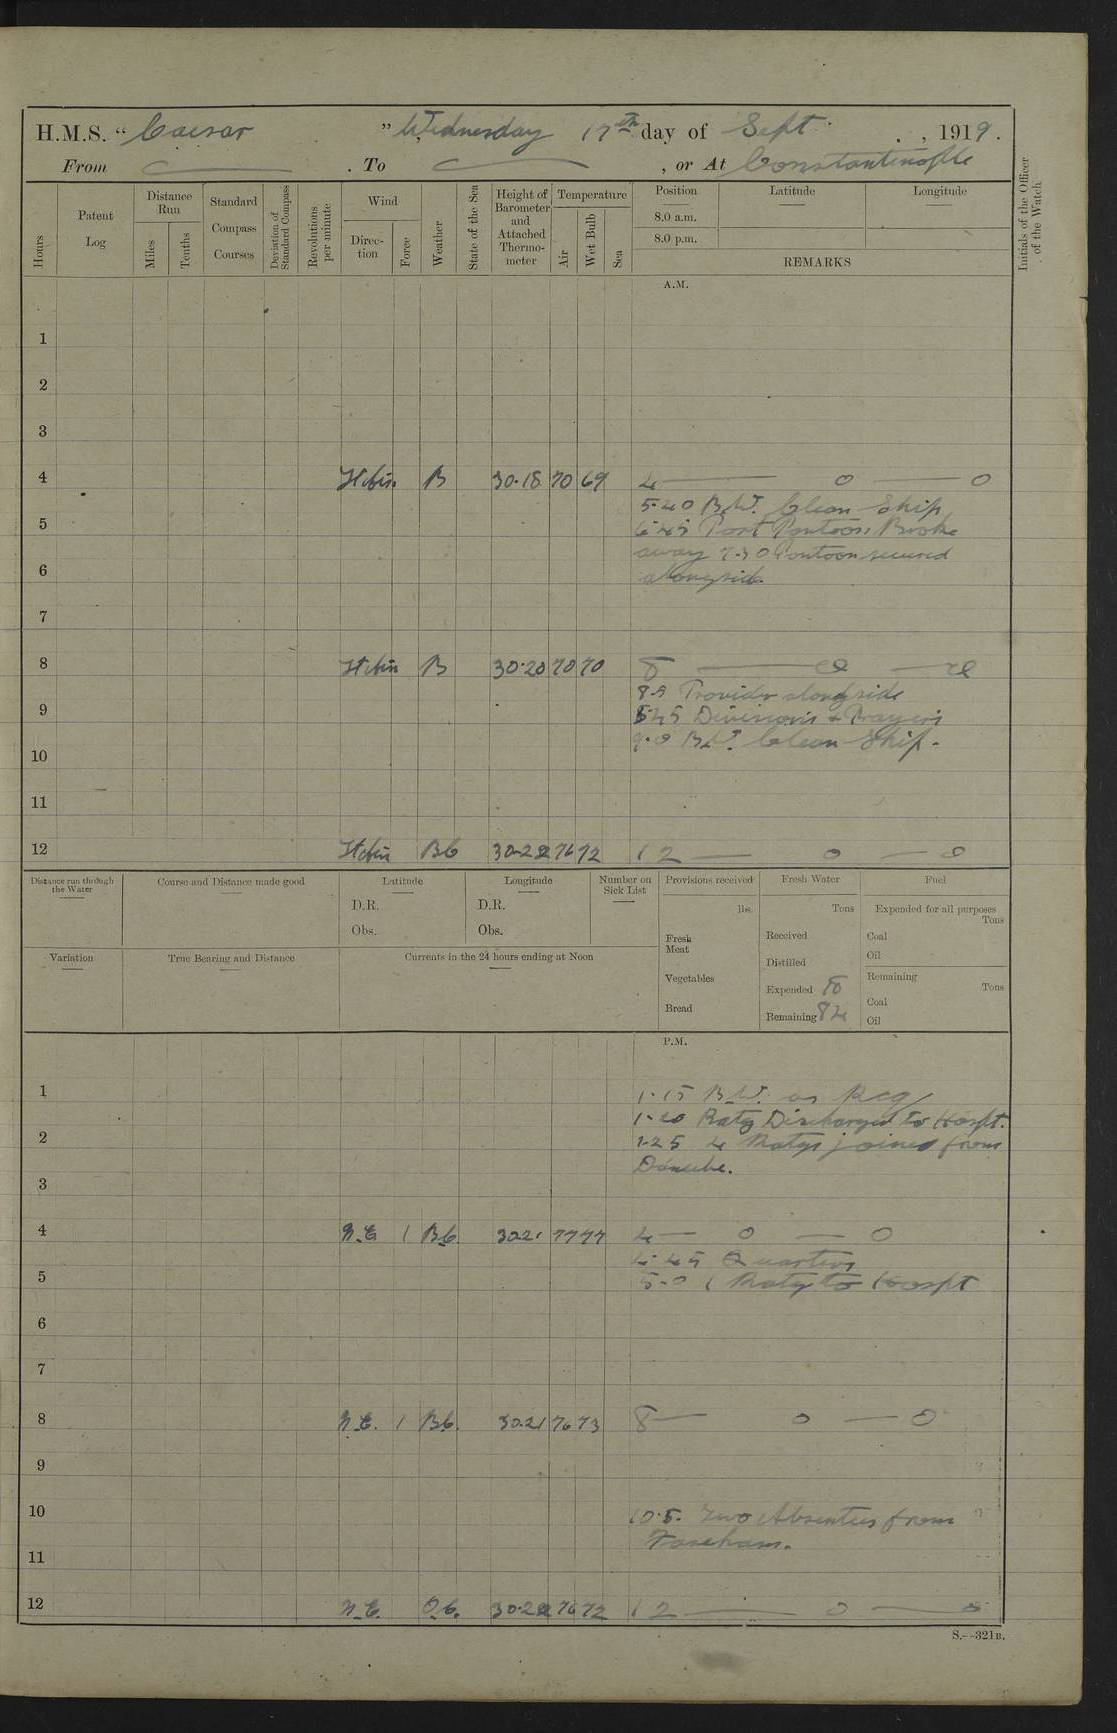 H.M.S. " Caesar " Wednesday 17th day of Sept. , 1919.
From . To , or At Constantinople
Hours
Patent Log
Distance Run
Miles
Tenths
Standard Compass Courses
Deviation of Standard Compass
Revolutions per minute
Wind
Direction
Force
Weather
State of the Sea
Height of Barometer and Attached Thermometer
Temperature
Air
Wet Bulb
Sea
Position
8.0 a.m.
8.0 p.m.
Latitude
Longitude
REMARKS
Initials of the Officer of the Watch
A.M.
1
2
3
4 B 30.18 70 69 4 — 0 — 0
5.40 B.W. Clean Ship
5
6.45 Port Pontoon Broke
away 7.30 Pontoon secured
6
alongside.
7
8 B 30.20 70 70 8
alongside
9
8.45 Divisions + Prayers
9.0 B.W. Clean Ship.
10
11
12 BC 30.22 76 72 12 — 0 — 0
Distance run through the Water
Course and Distance made good
Latitude
D.R.
Obs.
Longitude
D.R.
Obs.
Number on Sick List
Provisions received
lbs.
Fresh Meat
Vegetables
Bread
Fresh Water
Tons
Received
Distilled
Expended
Remaining
Fuel
Expended for all purposes
Tons
Coal
Oil
Remaining
Tons
Coal
Oil
Variation
True Bearing and Distance
Currents in the 24 hours ending at Noon
P.M.
1
1.15 B.W. as Req
1.20 Ratg Discharged to Hospt.
2
1.25 4 Ratgs joined from
Danube.
3
4 N.E. 1 B.C. 30.21 77 77 4 — 0 — 0
4.45 Quarters
5
5.0 1 Ratg to Hospt
6
7
8 N.E. 1 B.C. 30.21 76 73 8 — 0 — 0
9
10
10.5. Two Absentees from
Fareham.
11
12 N.E. O.C. 30.22 76 72 12 — 0 — 0
S.—321B.